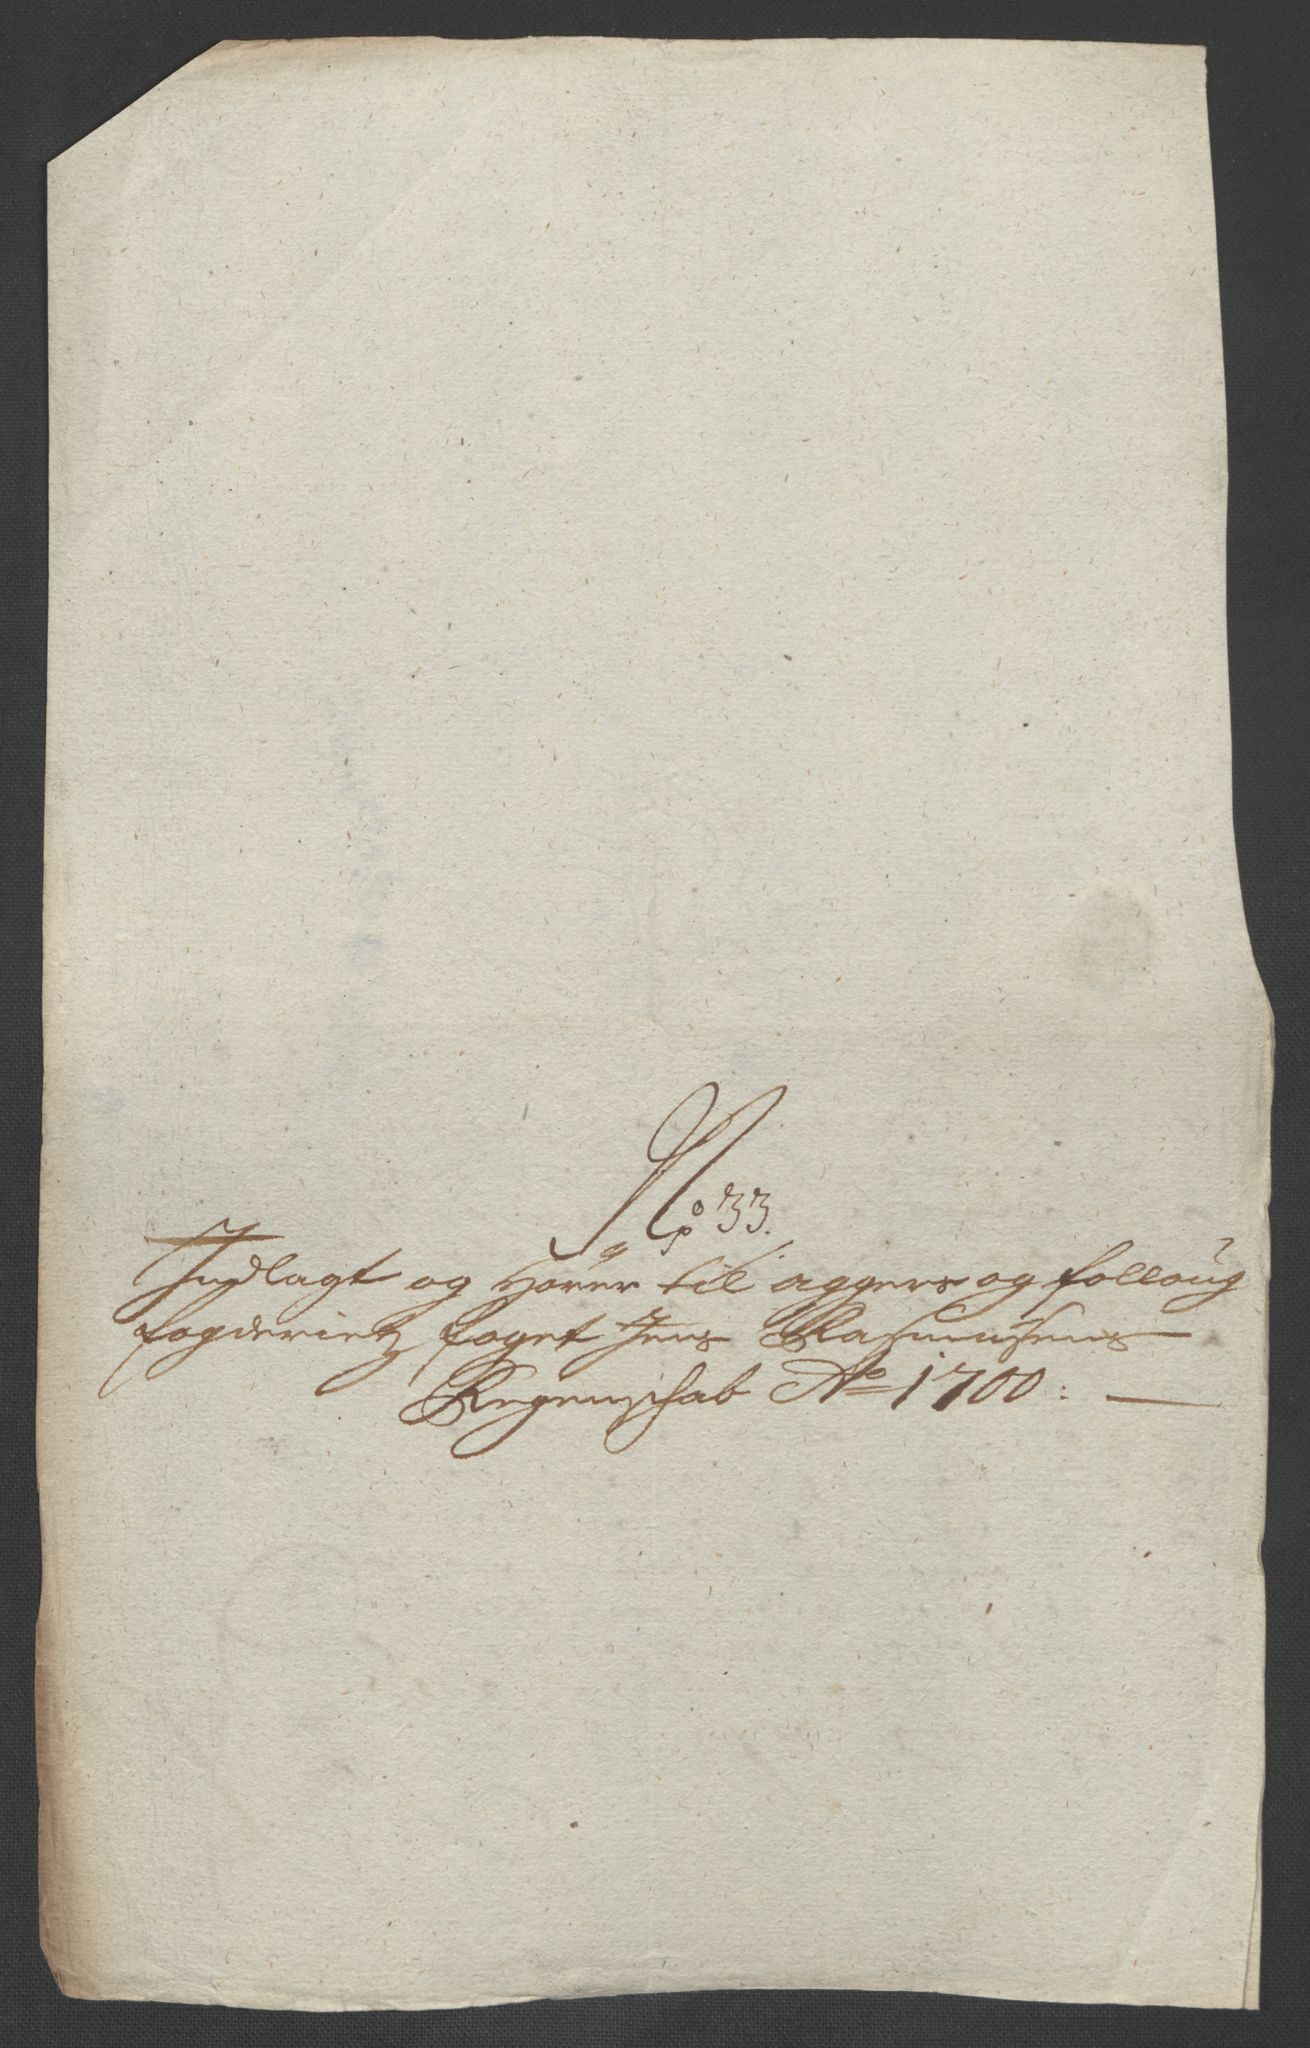 No 33.
Indlagt og Hörer til aggers og folloug
fogderietz foget Jens Rasmusens
Regenschab Ao 1700: